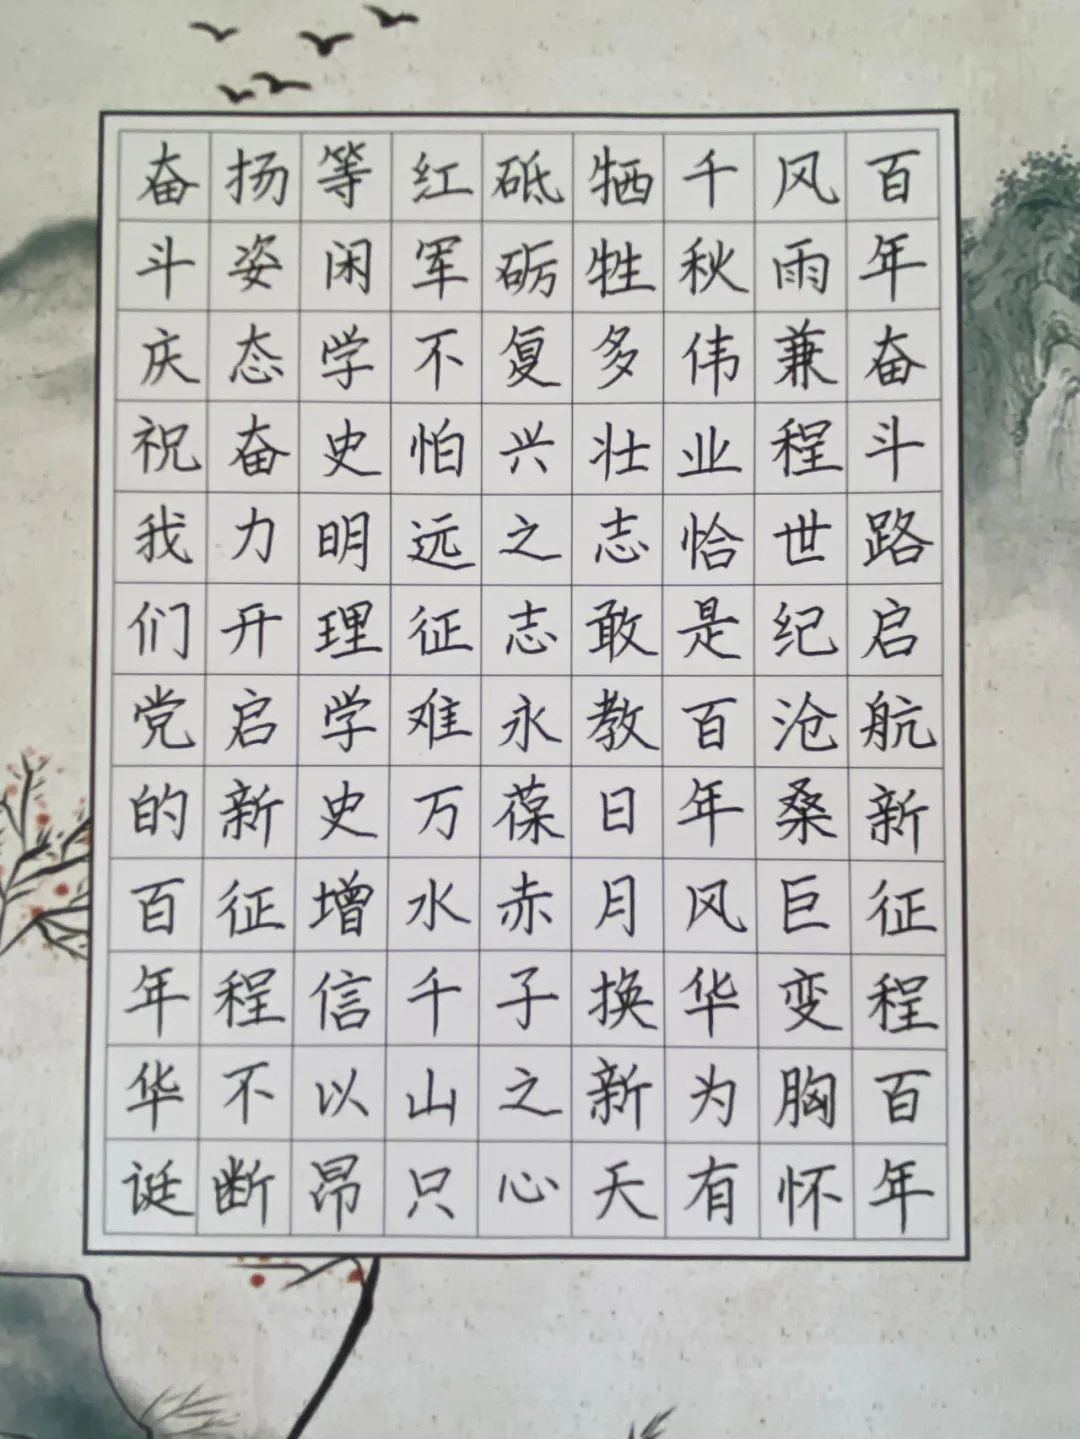 百年奋斗路启航新征程百年
风雨兼程世纪沧桑巨变胸怀
千秋伟业恰是百年风华为有
牺牲多壮志敢教日月换新天
砥砺复兴之志永葆赤子之心
红军不怕远征难万水千山只
等闲学史明理学史增信以昂
扬姿态奋力开启新征程不断
奋斗庆祝我们党的百年华诞